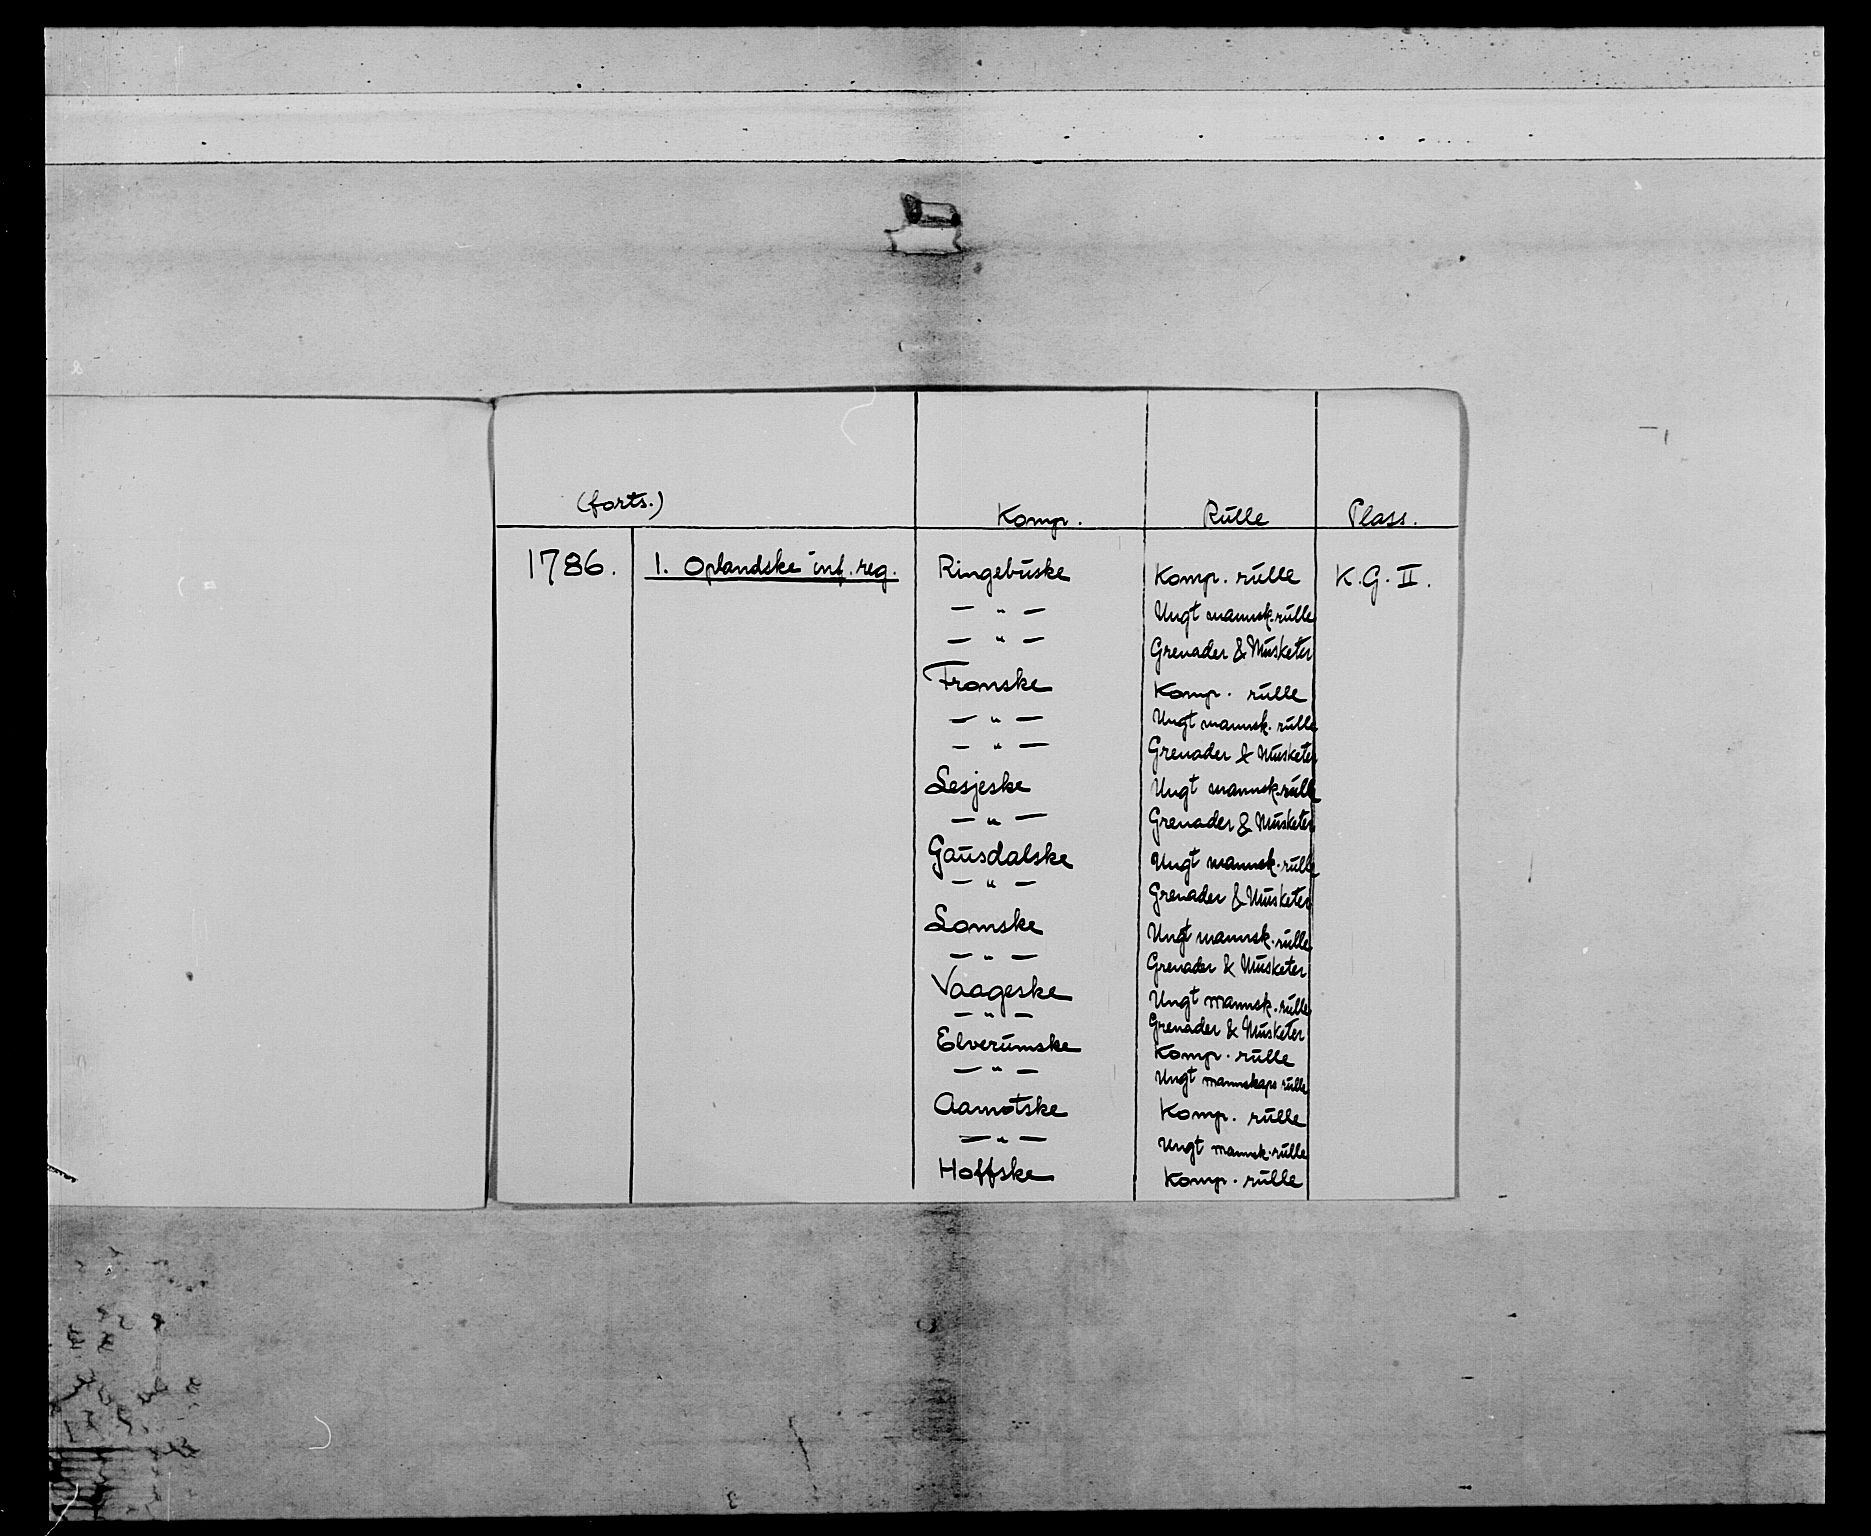 (forts.) Komp. Rulle Plass.
1786. 1. Oplandske inf. reg. Ringebuske Komp. rulle K.G. II.
— " — Ungt mannsk. rulle
— " — Grenader & Musketer
Fronske Komp. rulle
— " — Ungt mannsk. rulle
— " — Grenader & Musketer
Lesjeske Ungt mannsk. rulle
— " — Grenader & Musketer
Gausdalske Ungt mannsk. rulle
— " — Grenader & Musketer
Lomske Ungt mannsk. rulle
— " — Grenader & Musketer
Vaageske Ungt mannsk. rulle
— " — Grenader & Musketer
Elverumske Komp. rulle
— " — Ungt mannskaps rulle
Aamotske Komp. rulle
— " — Ungt mannsk. rulle
Hoffske Komp. rulle